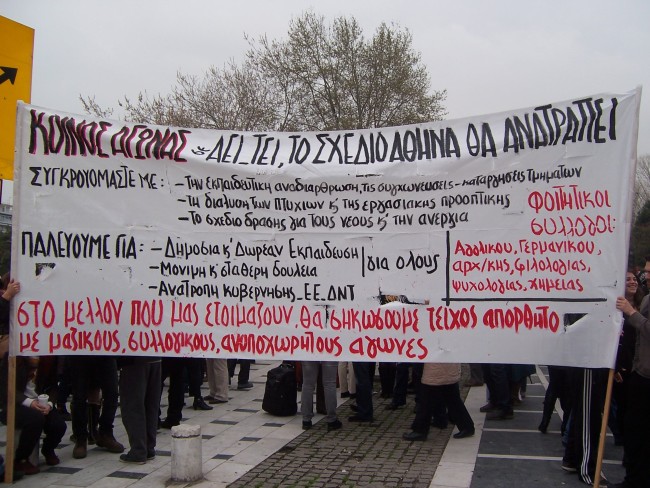 ΚΟΙΝΟΣ ΑΓΩΝΑΣ ΑΕΙ_ΤΕΙ, ΤΟ ΣΧΕΔΙΟ ΑΘΗΝΑ ΘΑ ΑΝΑΤΡΑΠΕΙ
ΣΥΓΚΡΟΥΟΜΑΣΤΕ ΜΕ:
-Την Εκπαιδευτική αναδιάρθρωση, τις συγχωνεύσεις-καταργήσεις τμημάτων
-Τη διάλυση των Πτυχίων κ' της εργασιακής προοπτικής
-Το σχέδιο δράσης για τους νέους κ' την ανεργία
ΠΑΛΕΥΟΥΜΕ ΓΙΑ:
-Δημόσια κ' Δωρεάν Εκπαίδευση
-Μόνιμη κ' σταθερή δουλειά
-Ανατροπή κυβέρνησης_ΕΕ_ΔΝΤ
για όλους
ΦΟΙΤΗΤΙΚΟΙ
ΣΥΛΛΟΓΟΙ:
Αγγλικού, Γερμανικού,
αρχ/κής, φιλολογίας,
ψυχολογίας, χημείας
ΣΤΟ ΜΕΛΛΟΝ ΠΟΥ ΜΑΣ ΕΤΟΙΜΑΖΟΥΝ, ΘΑ ΣΗΚΩΣΟΥΜΕ ΤΕΙΧΟΣ ΑΠΟΡΘΗΤΟ
ΜΕ ΜΑΖΙΚΟΥΣ, ΣΥΛΛΟΓΙΚΟΥΣ, ΑΝΥΠΟΧΩΡΗΤΟΥΣ ΑΓΩΝΕΣ